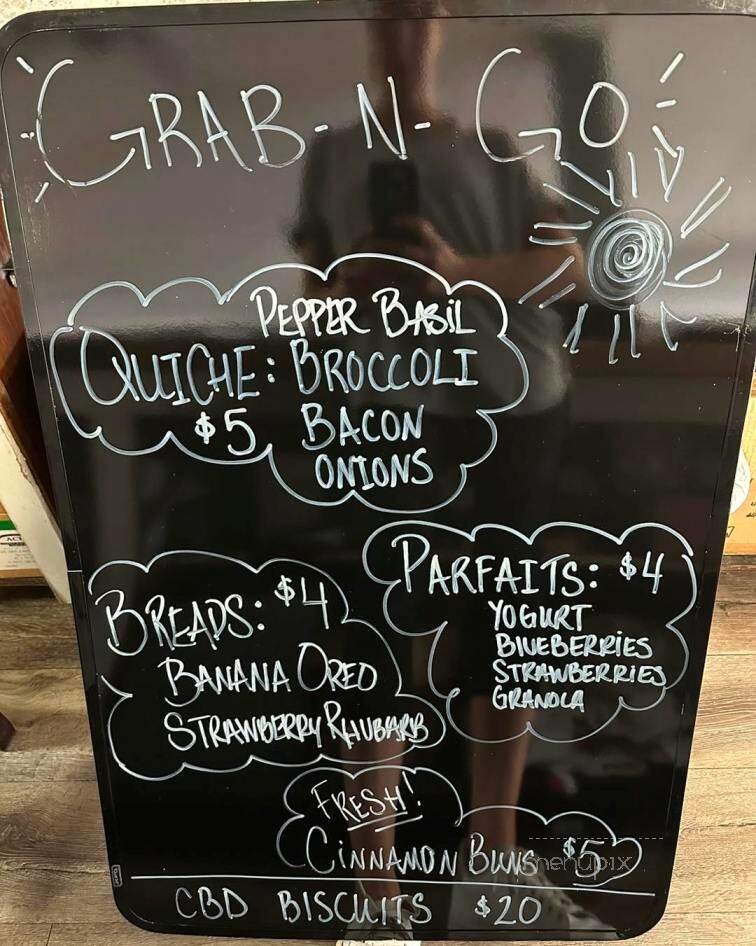 GRAB-N-GO
PEPPER BASIL
QUICHE: BROCCOLI
$5 BACON
ONIONS
PARFAITS: $4
YOGURT
BLUEBERRIES
STRAWBERRIES
GRANOLA
BREADS: $4
BANANA OREO
STRAWBERRY RHUBARB
FRESH!
CINNAMON BUNS $5
menupix
CBD BISCUITS $20